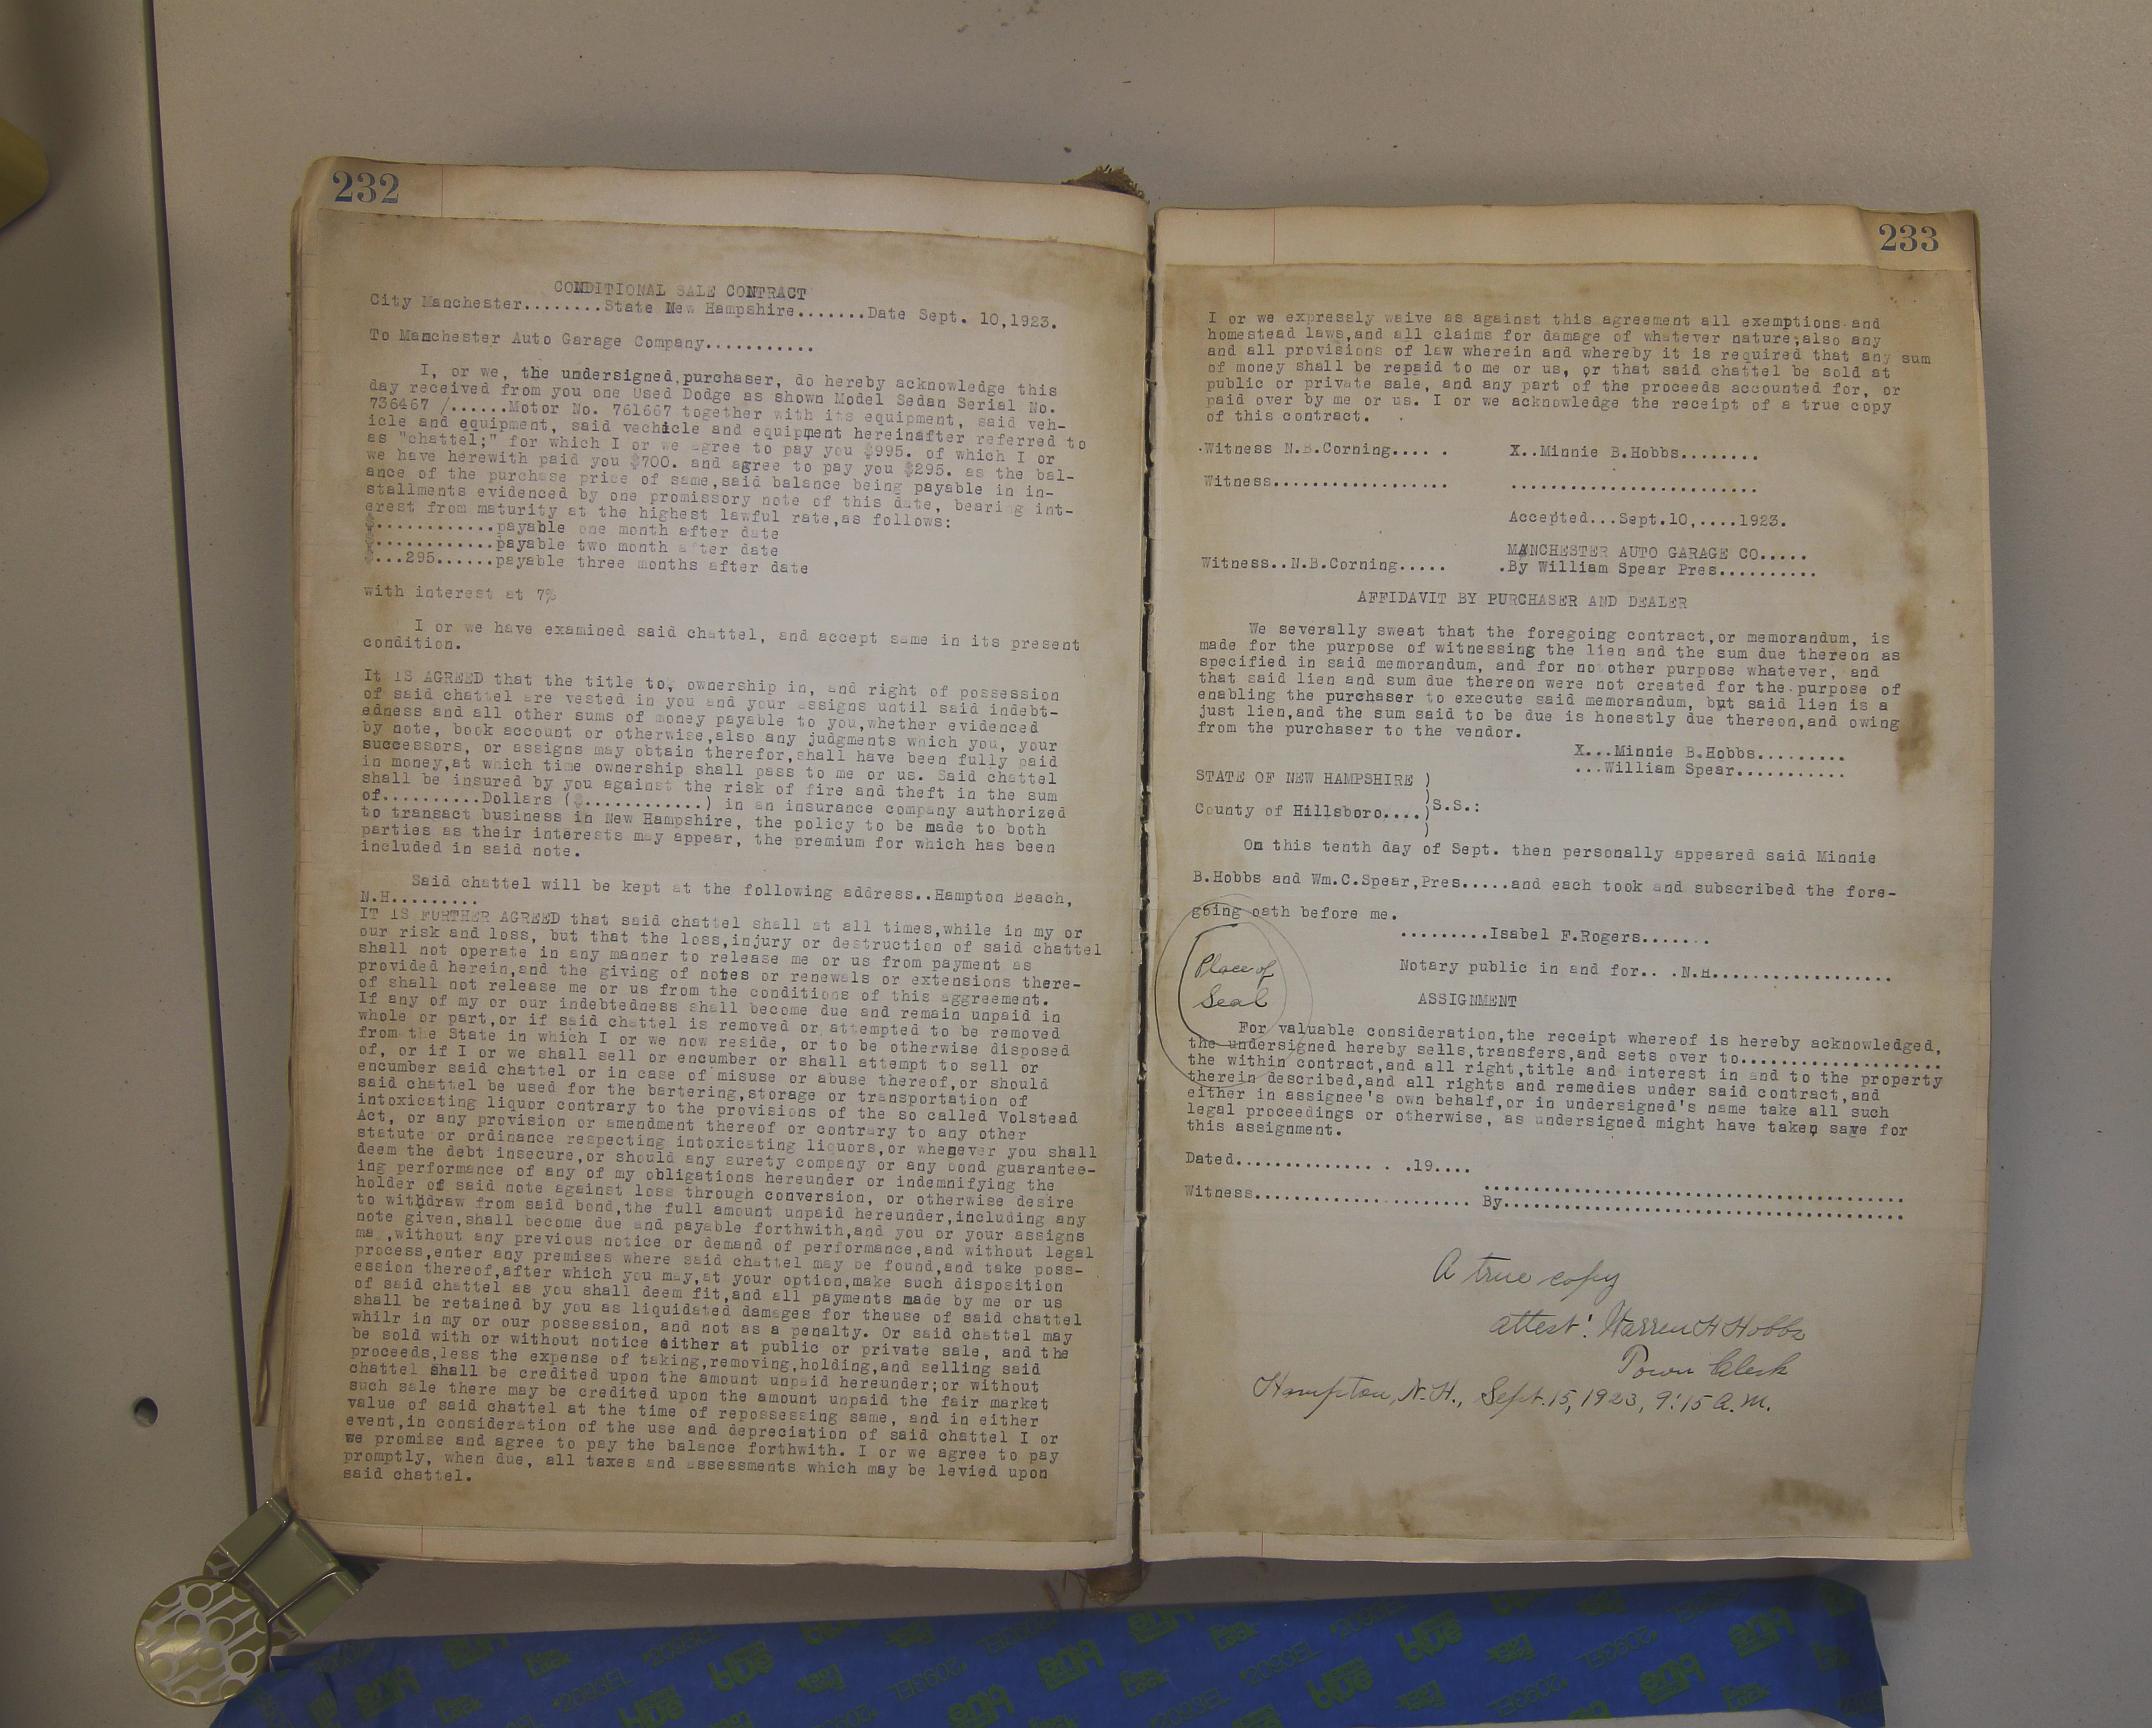 232
CONDITIONAL SALE CONTRACT
City Manchester........State New Hampshire.......Date Sept. 10,1923.
To Manchester Auto Garage Company...........
I, or we, the undersigned,purchaser, do hereby acknowledge this
day received from you one Used Dodge as shown Model Sedan Serial No.
736467 /......Motor No. 761667 together with its equipment, said veh-
icle and equipment, said vechicle and equipment hereinafter referred to
as "chattel;" for which I or we agree to pay you $995. of which I or
we have herewith paid you $700. and agree to pay you $295. as the bal-
ance of the purchase price of same,said balance being payable in in-
stallments evidenced by one promissory note of this date, bearing int-
erest from maturity at the highest lawful rate,as follows:
$............payable one month after date
$............payable two month after date
$...295......payable three months after date
with interest at 7%
I or we have examined said chattel, and accept same in its present
condition.
It IS AGREED that the title to, ownership in, and right of possession
of said chattel are vested in you and your assigns until said indebt-
edness and all other sums of money payable to you,whether evidenced
by note, book account or otherwise,also any judgments which you, your
successors, or assigns may obtain therefor,shall have been fully paid
in money,at which time ownership shall pass to me or us. Said chattel
shall be insured by you against the risk of fire and theft in the sum
of..........Dollars ($............) in an insurance company authorized
to transact business in New Hampshire, the policy to be made to both
parties as their interests may appear, the premium for which has been
included in said note.
Said chattel will be kept at the following address..Hampton Beach,
N.H.........
IT IS FURTHER AGREED that said chattel shall at all times,while in my or
our risk and loss, but that the loss,injury or destruction of said chattel
shall not operate in any manner to release me or us from payment as
provided herein,and the giving of notes or renewals or extensions there-
of shall not release me or us from the conditions of this aggreement.
If any of my or our indebtedness shall become due and remain unpaid in
whole or part,or if said chattel is removed or attempted to be removed
from the State in which I or we now reside, or to be otherwise disposed
of, or if I or we shall sell or encumber or shall attempt to sell or
encumber said chattel or in case of misuse or abuse thereof,or should
said chattel be used for the bartering,storage or transportation of
intoxicating liquor contrary to the provisions of the so called Volstead
Act, or any provision or amendment thereof or contrary to any other
statute or ordinance respecting intoxicating liquors,or whenever you shall
deem the debt insecure,or should any surety company or any bond guarantee-
ing performance of any of my obligations hereunder or indemnifying the
holder of said note against loss through conversion, or otherwise desire
to withdraw from said bond,the full amount unpaid hereunder,including any
note given,shall become due and payable forthwith,and you or your assigns
may,without any previous notice or demand of performance,and without legal
process,enter any premises where said chattel may be found,and take poss-
ession thereof,after which you may,at your option,make such disposition
of said chattel as you shall deem fit,and all payments made by me or us
shall be retained by you as liquidated damages for theuse of said chattel
whilr in my or our possession, and not as a penalty. Or said chattel may
be sold with or without notice either at public or private sale, and the
proceeds,less the expense of taking,removing,holding,and selling said
chattel shall be credited upon the amount unpaid hereunder;or without
such sale there may be credited upon the amount unpaid the fair market
value of said chattel at the time of repossessing same, and in either
event,in consideration of the use and depreciation of said chattel I or
we promise and agree to pay the balance forthwith. I or we agree to pay
promptly, when due, all taxes and assessments which may be levied upon
said chattel.
233
I or we expressly waive as against this agreement all exemptions and
homestead laws,and all claims for damage of whatever nature;also any
and all provisions of law wherein and whereby it is required that any sum
of money shall be repaid to me or us, or that said chattel be sold at
public or private sale, and any part of the proceeds accounted for, or
paid over by me or us. I or we acknowledge the receipt of a true copy
of this contract.
Witness N.B.Corning..... X..Minnie B.Hobbs........
Witness................. .........................
Accepted...Sept.10,....1923.
MANCHESTER AUTO GARAGE CO.....
Witness..N.B.Corning..... .By William Spear Pres..........
AFFIDAVIT BY PURCHASER AND DEALER
We severally sweat that the foregoing contract,or memorandum, is
made for the purpose of witnessing the lien and the sum due thereon as
specified in said memorandum, and for no other purpose whatever, and
that said lien and sum due thereon were not created for the purpose of
enabling the purchaser to execute said memorandum, but said lien is a
just lien,and the sum said to be due is honestly due thereon,and owing
from the purchaser to the vendor.
X...Minnie B.Hobbs.........
...William Spear...........
STATE OF NEW HAMPSHIRE )
)S.S.:
County of Hillsboro....)
)
On this tenth day of Sept. then personally appeared said Minnie
B.Hobbs and Wm.C.Spear,Pres.....and each took and subscribed the fore-
going oath before me.
.........Isabel F.Rogers.......
Place of
Seal
Notary public in and for.. .N.H..................
ASSIGNMENT
For valuable consideration,the receipt whereof is hereby acknowledged,
the undersigned hereby sells,transfers,and sets over to....................
the within contract,and all right,title and interest in and to the property
therein described,and all rights and remedies under said contract,and
either in assignee's own behalf,or in undersigned's name take all such
legal proceedings or otherwise, as undersigned might have taken save for
this assignment.
Dated.............. . .19....
..........................................
Witness...................... By........................................
A true copy
attest: Warren H Hobbs
Town Clerk
Hampton, N.H., Sept. 15, 1923, 9:15 A.M.